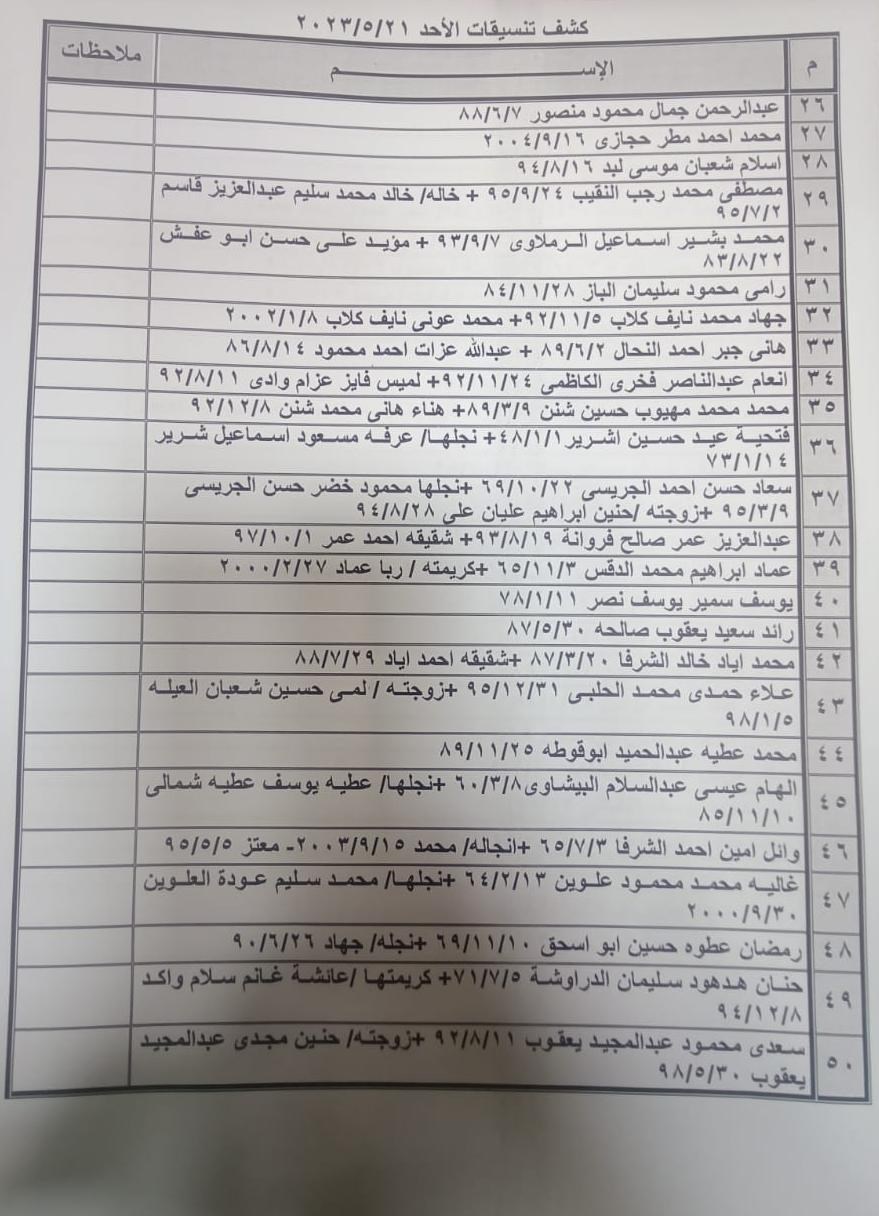 كشف تنسيقات الأحد ٢٠٢٣/٥/٢١
م الإســـــــــــــــم ملاحظات
٢٦ عبدالرحمن جمال محمود منصور ٨٨/٦/٧
٢٧ محمد احمد مطر حجازى ٢٠٠٤/٩/١٦
٢٨ اسلام شعبان موسى لبد ٩٤/٨/١٦
٢٩ مصطفى محمد رجب النقيب ٩٥/٩/٢٤ + خاله/ خالد محمد سليم عبدالعزيز قاسم
٩٥/٧/٢
٣٠ محمد بشير اسماعيل الرملاوى ٩٣/٩/٧ + مؤيد على حسن ابو عفش
٨٣/٨/٢٢
٣١ رامى محمود سليمان الباز ٨٤/١١/٢٨
٣٢ جهاد محمد نايف كلاب ٩٢/١١/٥+ محمد عونى نايف كلاب ٢٠٠٢/١/٨
٣٣ هانى جبر احمد النحال ٨٩/٦/٢ + عبدالله عزات احمد محمود ٨٦/٨/١٤
٣٤ انعام عبدالناصر فخرى الكاظمى ٩٢/١١/٢٤+ لميس فايز عزام وادى ٩٢/٨/١١
٣٥ محمد محمد مهيوب حسين شنن ٨٩/٣/٩+ هناء هانى محمد شنن ٩٢/١٢/٨
٣٦ فتحية عيد حسين اشرير ٤٨/١/١+ نجلها/ عرفه مسعود اسماعيل شرير
٧٣/١/١٤
٣٧ سعاد حسن احمد الجريسى ٦٩/١٠/٢٢ +نجلها محمود خضر حسن الجريسى
٩٥/٣/٩ +زوجته /حنين ابراهيم عليان على ٩٤/٨/٢٨
٣٨ عبدالعزيز عمر صالح فروانة ٩٣/٨/١٩+ شقيقه احمد عمر ٩٧/١٠/١
٣٩ عماد ابراهيم محمد الدقس ٦٥/١١/٣ +كريمته / ربا عماد ٢٠٠٠/٢/٢٧
٤٠ يوسف سمير يوسف نصر ٧٨/١/١١
٤١ رائد سعيد يعقوب صالحه ٨٧/٥/٣٠
٤٢ محمد اياد خالد الشرفا ٨٧/٣/٢٠ +شقيقه احمد اياد ٨٨/٧/٢٩
٤٣ علاء حمدى محمد الحلبى ٩٥/١٢/٣١ +زوجته / لمى حسين شعبان العيله
٩٨/١/٥
٤٤ محمد عطيه عبدالحميد ابوقوطه ٨٩/١١/٢٥
٤٥ الهام عيسى عبدالسلام البيشاوى ٦٠/٣/٨ +نجلها/ عطيه يوسف عطيه شمالى
٨٥/١١/١٠
٤٦ وائل امين احمد الشرفا ٦٥/٧/٣ +انجاله/ محمد ٢٠٠٣/٩/١٥- معتز ٩٥/٥/٥
٤٧ غاليه محمد محمود علوين ٦٤/٢/١٣ +نجلها/ محمد سليم عودة العلوين
٢٠٠٠/٩/٣٠
٤٨ رمضان عطوه حسين ابو اسحق ٦٩/١١/١٠ +نجله/ جهاد ٩٠/٦/٢٦
٤٩ حنان هدهود سليمان الدراوشة ٧١/٧/٥+ كريمتها /عائشة غانم سلام واكد
٩٤/١٢/٨
٥٠ سعدى محمود عبدالمجيد يعقوب ٩٢/٨/١١ +زوجته/ حنين مجدى عبدالمجيد
يعقوب ٩٨/٥/٣٠